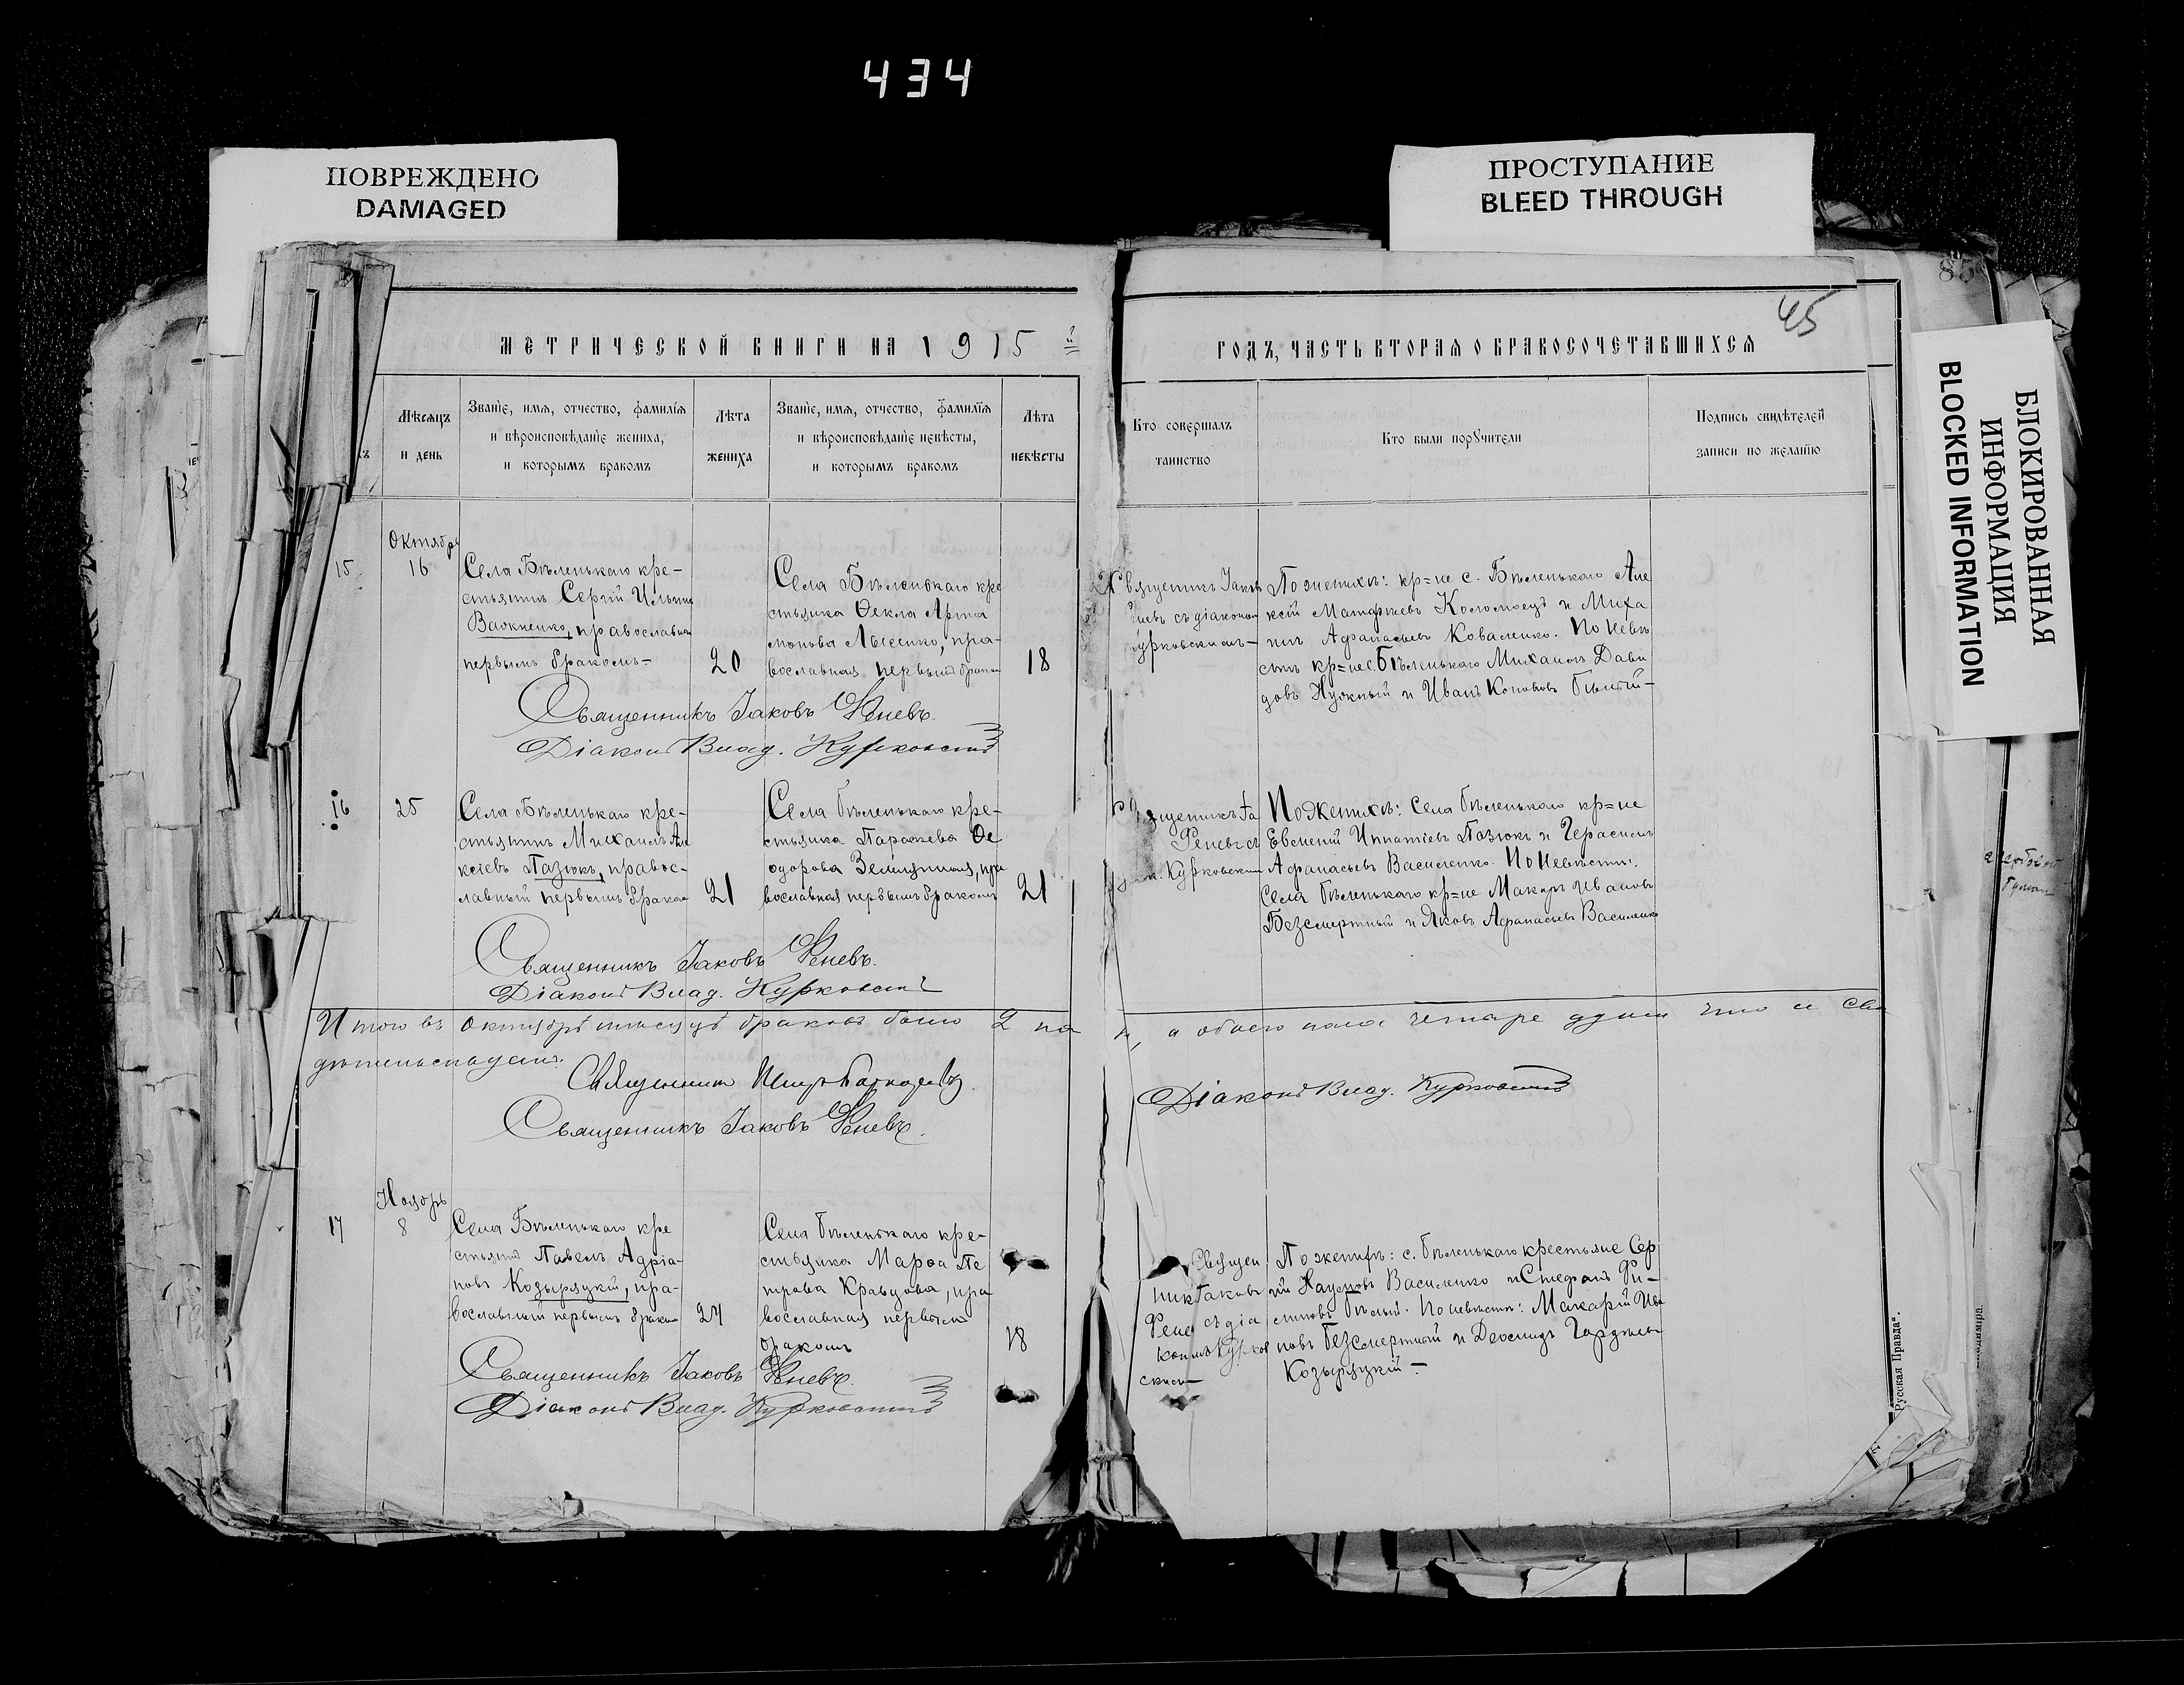 434
ПОВРЕЖДЕНО
DAMAGED
ПРОСТУПАНИЕ
BLEED THROUGH
БЛОКИРОВАННАЯ
ИНФОРМАЦИЯ
BLOCKED INFORMATION
85
45
МЕТРИЧЕСКОЙ КНИГИ НА 1915 й
ГОДЪ, ЧАСТЬ ВТОРАЯ О БРАКОСОЧЕТАВШИХСЯ
Мѣсяцъ
и день
Званіе, имя, отчество, фамилія
и вѣроисповѣданіе жениха,
и которымъ бракомъ
Лѣта
жениха
Званіе, имя, отчество, фамилія
и вѣроисповѣданіе невѣсты,
и которымъ бракомъ
Лѣта
невѣсты
Кто совершалъ
таинство
Кто были поручители
Подпись свидѣтелей
записи по желанію
15
Октябрь
16
Села Бѣленькаго кре-
стьянинъ Сергій Ильинъ
православный
первымъ бракомъ-
20
Села Бѣленькаго кре
стьянка Ѳекла Арта
монова Лысенко, пра-
вославная первымъ бракомъ
18
съ діакономъ
Курковскимъ-
По женихѣ: кр=не с. Бѣленькаго Але
ксѣй Матѳіевъ Коломоецъ и Миха
илъ Аѳанасьевъ Коваленко. По невѣ
стѣ кр=не с. Бѣленькаго Михаилъ Дави
довъ Нужный и Иванъ Кононовъ Бѣлый-
Священникъ Іаковъ Реневъ.
Діаконъ Влад. Курковскій
16
25
Села Бѣленькаго кре-
стьянинъ Михаилъ Але
ксѣевъ Пазюкъ, правос-
лавный первымъ бракомъ
21
Села Бѣленькаго кре-
стьянка Параскева Ѳе
одорова пра
вославная первымъ бракомъ
21
Реневъ съ
Курковскимъ
По женихѣ: Села Бѣленькаго кр=не
Евсеній Игнатіевъ Пазюкъ и Герасимъ
Аѳанасьевъ Василенко. По невѣстѣ:
Села Бѣленькаго кр=не Макаръ Ивановъ
Безсмертный и Яковъ Аѳанасьевъ Василенко
Священникъ Іаковъ Реневъ.
Діаконъ Влад. Курковскій
Итого въ Октябрѣ мѣсяцѣ браковъ было 2 па
а обоего пола четыре души что и сви
дѣтельствуемъ.
Священникъ Петръ
Діаконъ Влад. Курковскій
Священникъ Іаковъ Реневъ.
17
Ноябрь
8
Села Бѣленькаго кре
стьянинъ Павелъ Адріа-
новъ Козырицкій, пра-
вославный первымъ бракомъ
24
Села Бѣленькаго кре-
стьянка Марѳа Пе
трова Кравцова, пра
вославная первымъ
бракомъ
18
Священ
никъ Іаковъ
Реневъ съ діа
кономъ Курков
скимъ-
По женихѣ: с. Бѣленькаго крестьяне Сер
гій Наумовъ Василенко и Стефанъ Фи-
Бѣлый. По невѣстѣ: Макарій Ива
новъ Безсмертный и Деомидъ
Козырицкій-
Священникъ Іаковъ Реневъ.
Діаконъ Влад. Курковскій
Русская Правда".